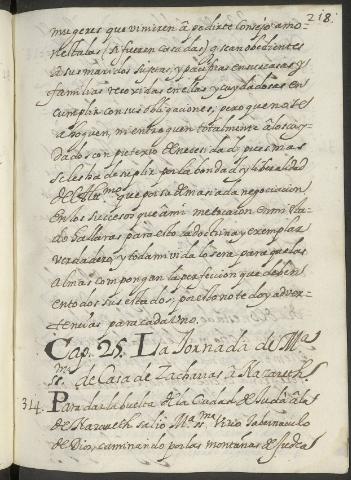 218.
mugeres que vinieren à pedirte Consejo amo-
nestalas (si fueren casadas) q sean obedientes
à sus maridos sugetas, y pacificas en sus casas y
familias recoxidas en ellas y cuydadosas en
cumplir con sus obligaciones; pero que no se
ahoguen, ni entreguen totalmente à los cuy-
dados con pretexto de necesidad, pues mas
se les ha de suplir por la bondad, y liberalidad
del Altmo. que por su demasiada negociacion
En los succesos que à mi me tocaron en mi Esta-
do hallaras para esto la doctrina y exemplar
verdadero, y toda mi vida lo serà para que las
almas compongan la perfeccion que deben
en todos sus estados; por esso no te doy adver-
tencias para cada uno.
Cap. 25. La Jornada de Ma
ma. ss. de Casa de Zacharias à Nazareth.
314. Para dar la buelta de la Ciudad de Judà à la
de Nazareth saliò Ma. ss.ma Vivo tabernaculo
de Dios, caminando por las montañas de Judea